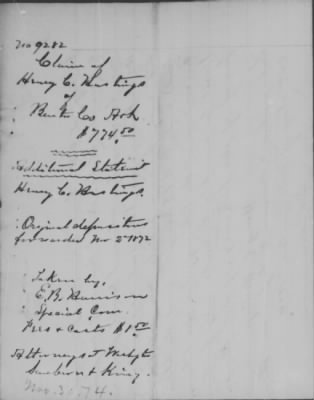 No 9282
Claim of
Henry C. Hastings
of
Benton Co Ark
$774.50
Additional Statement
Henry C. Hastings.
Original depositions
forwarded Nov 2d 1872
Taken by,
E. B. Harrison
Special Com.
Fees & Costs $1.50
Attorneys at
& King.
Nov. 3. 74.